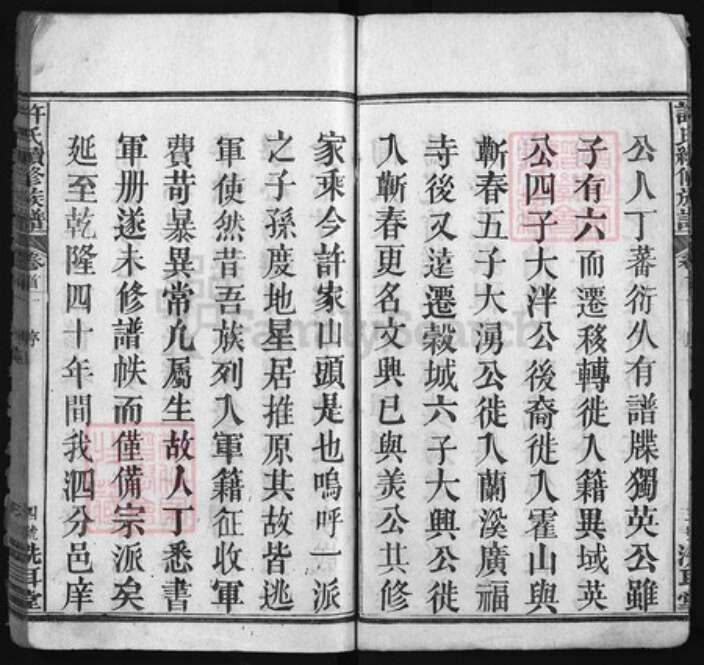 許氏續修族譜
公人丁蕃衍久有譜牒獨英公雖
子有六而遷移轉徙入籍異域英
公四子大泮公後裔徙入霍山與
蘄春五子大湧公徙入蘭溪廣福
寺後又遠遷榖城六子大興公徙
入蘄春更名文興已與羙公共修
家乘今許家山頭是也嗚呼一派
之子孫度地星居推原其故皆逃
軍使然昔吾族列入軍籍征收軍
費苛暴異常凢屬生故人丁悉書
軍册遂未修譜帙而僅備宗派矣
延至乾隆四十年間我泗分邑庠
許氏續修族譜
卷首一
序
四號
洗耳堂
FamilySearch